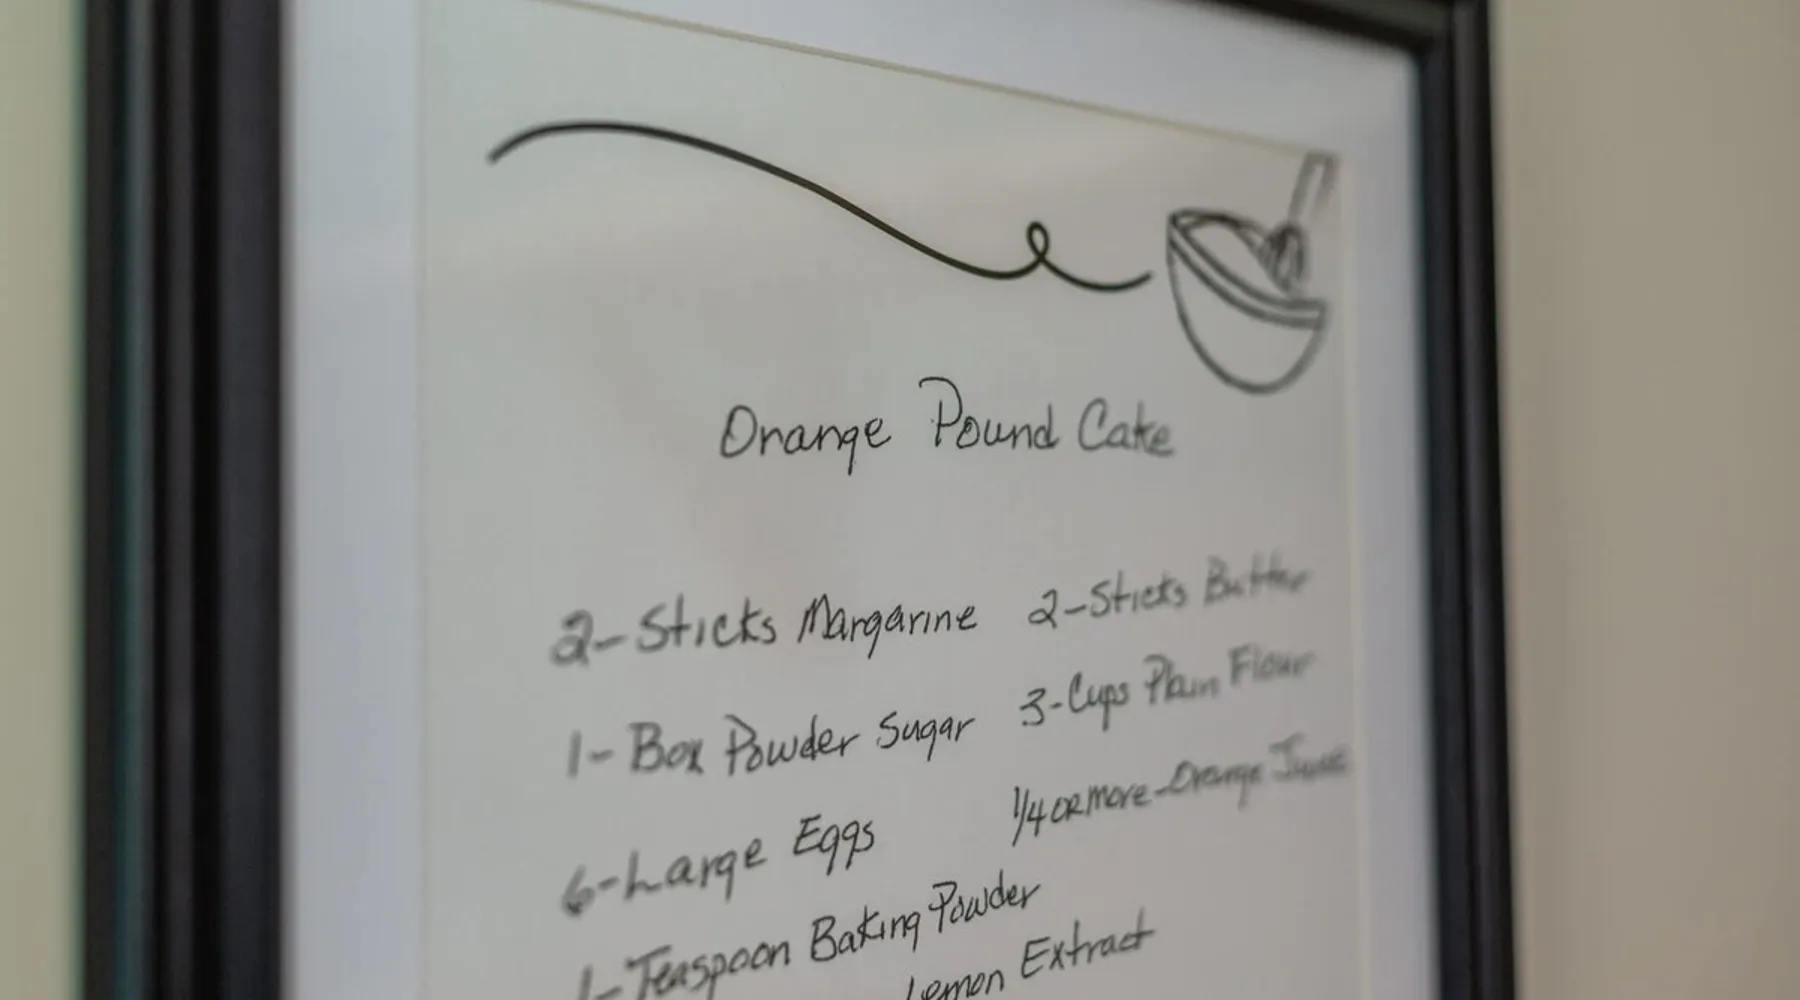 Orange Pound Cake
2-Sticks Margarine 2-Sticks Butter
1-Box Powder Sugar 3-Cups Plain Flour
6-Large Eggs 1/4 OR MORE-Orange Juice
1-Teaspoon Baking Powder
Lemon Extract